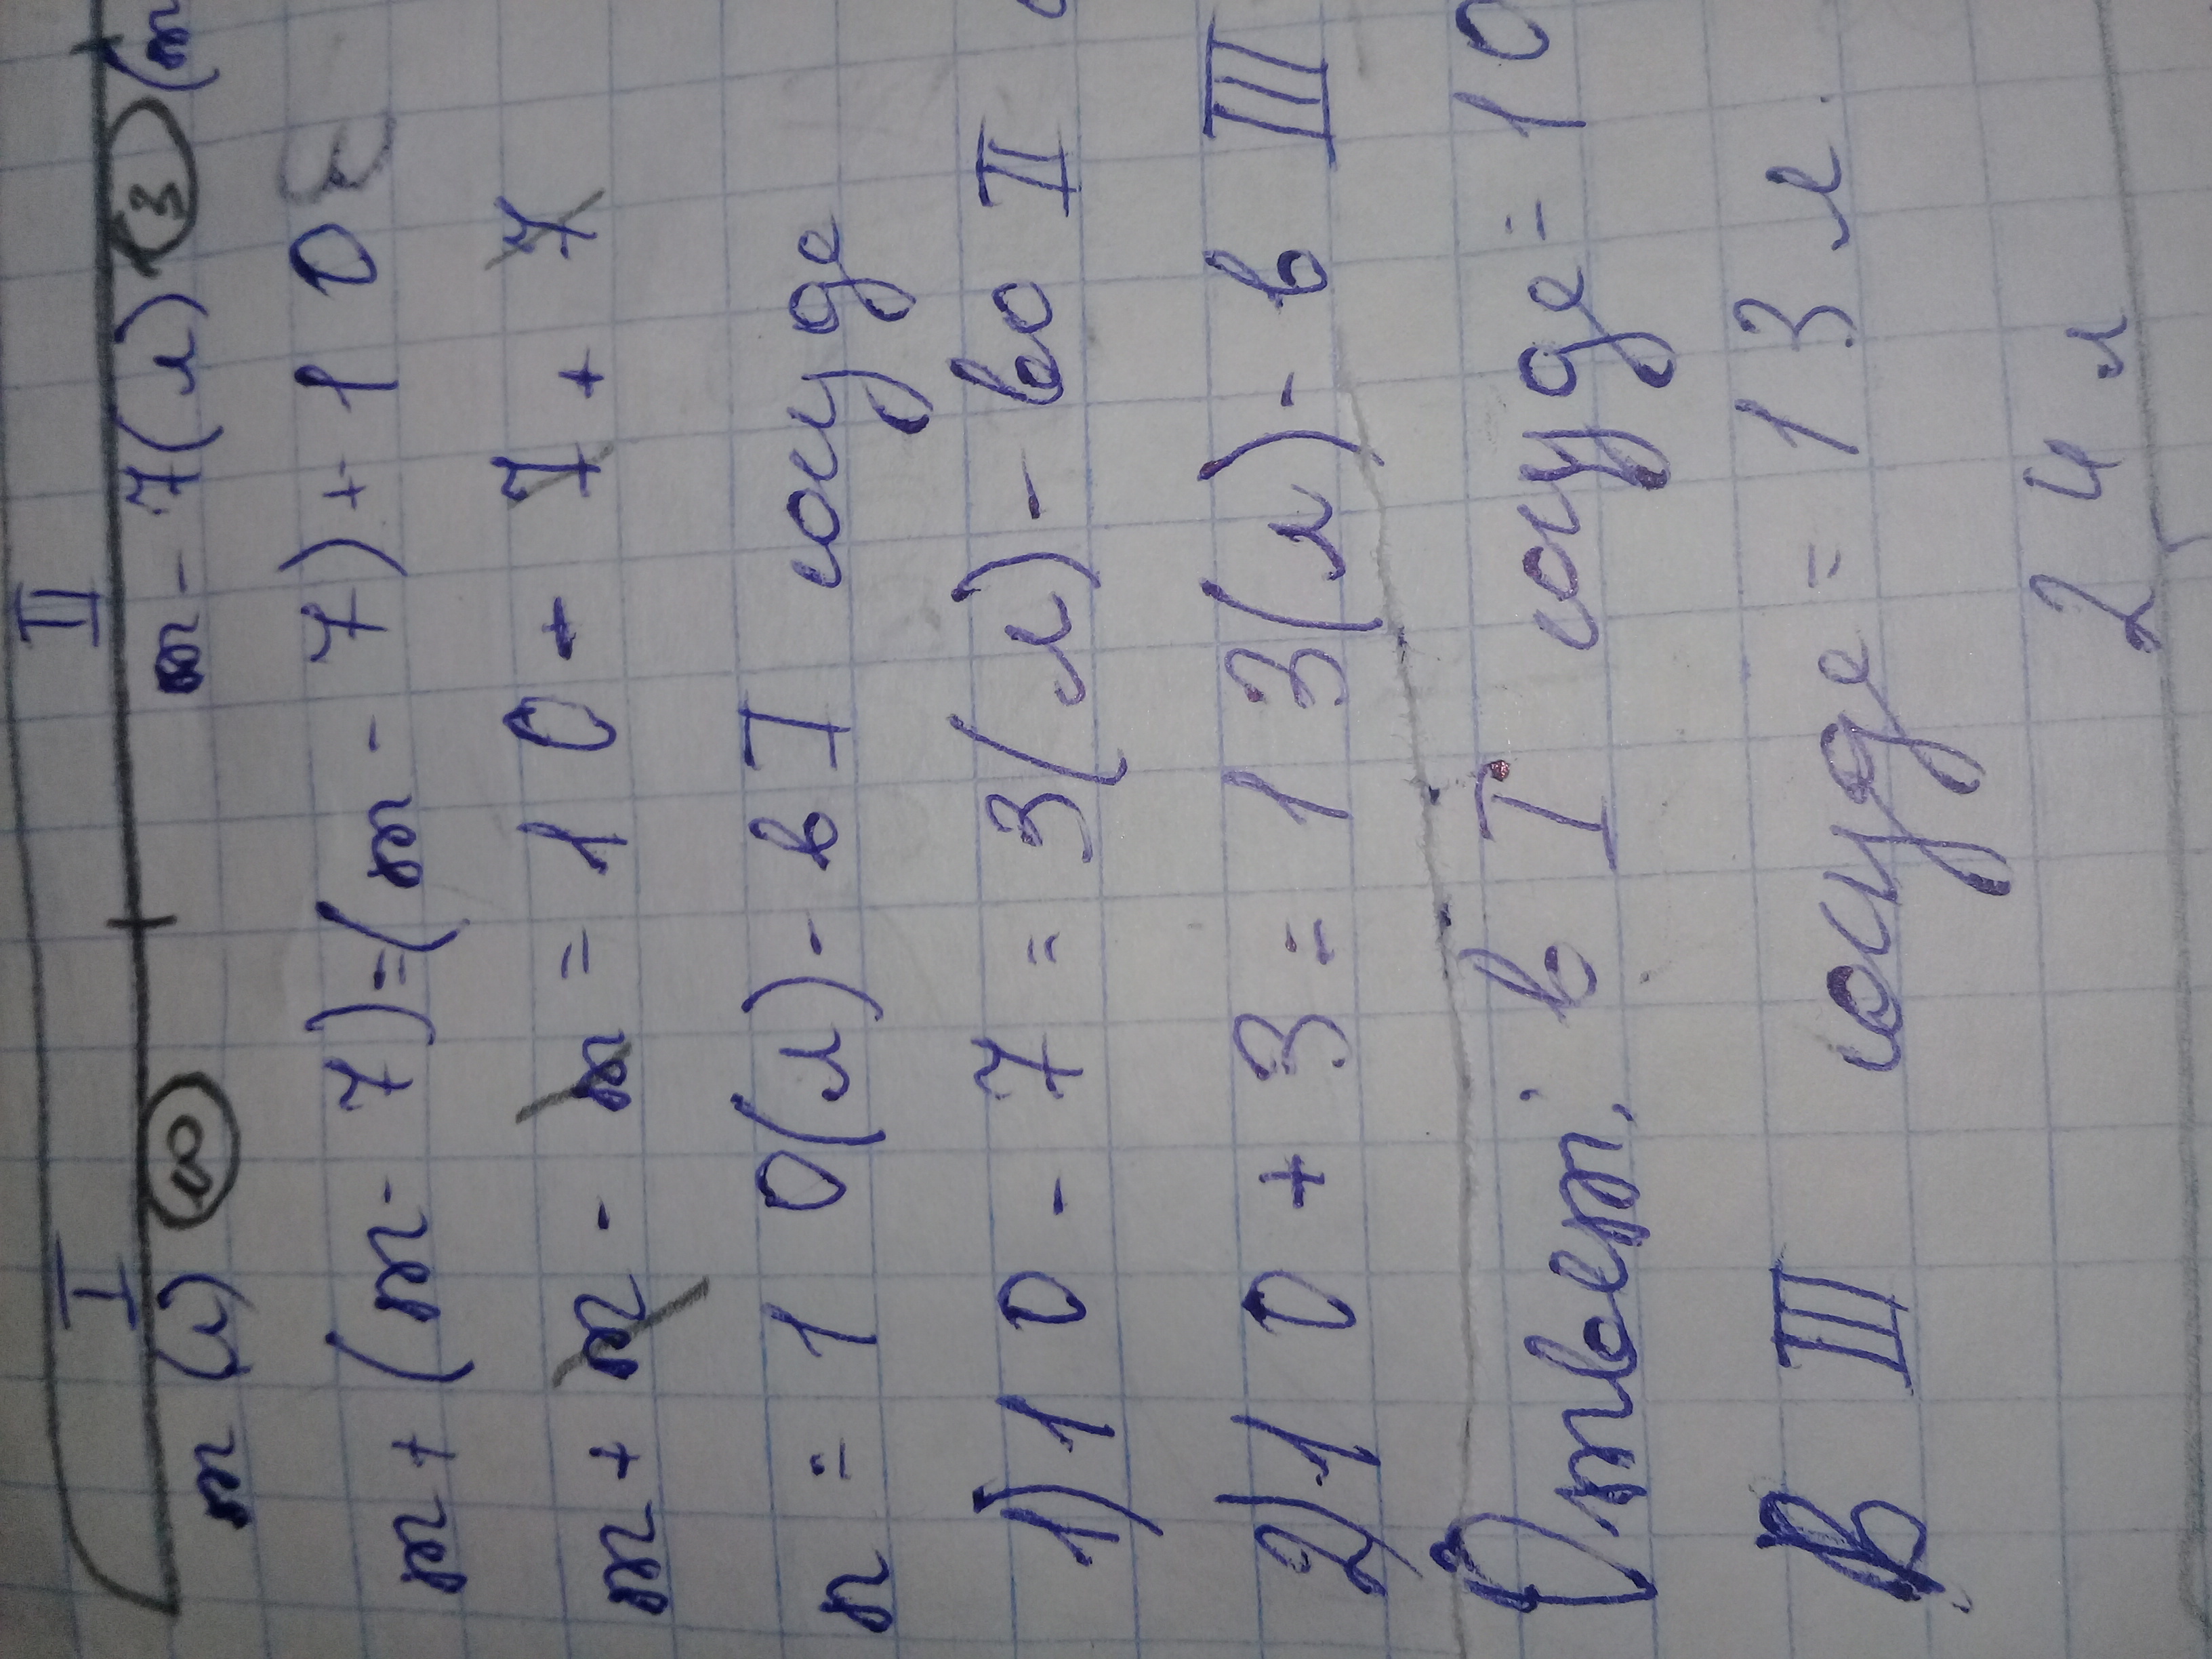 I II
m (л) 10 m - 7 (л) 3 (m
m + (m - 7) = (m - 7) + 10
m + m - m = 10 + 7 + 7
m = 10 (л) - в I сосуде
1) 10 - 7 = 3 (л) - во II
2) 10 + 3 = 13 (л) - в III
Ответ: в I сосуде = 10
В III сосуде = 13 л.
24 л